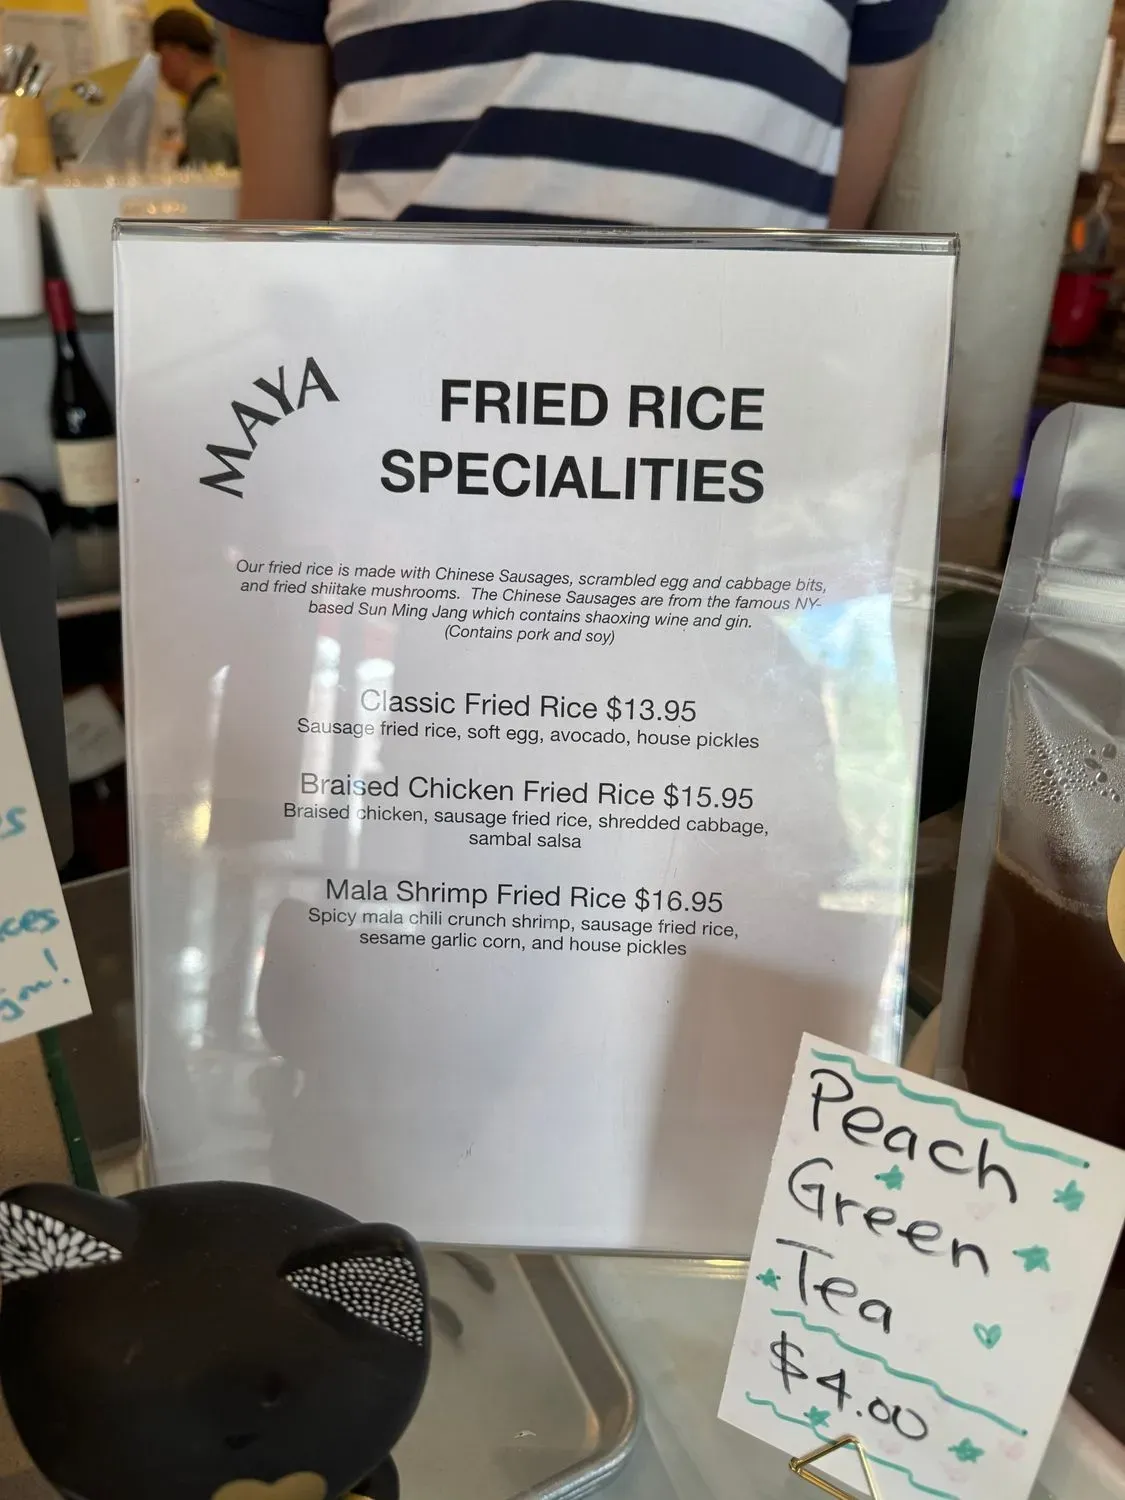 MAYA
FRIED RICE
SPECIALITIES
Our fried rice is made with Chinese Sausages, scrambled egg and cabbage bits,
and fried shiitake mushrooms. The Chinese Sausages are from the famous NY-
based Sun Ming Jang which contains shaoxing wine and gin.
(Contains pork and soy)
Classic Fried Rice $13.95
Sausage fried rice, soft egg, avocado, house pickles
Braised Chicken Fried Rice $15.95
Braised chicken, sausage fried rice, shredded cabbage,
sambal salsa
Mala Shrimp Fried Rice $16.95
Spicy mala chili crunch shrimp, sausage fried rice,
sesame garlic corn, and house pickles
Peach
Green
Tea
$4.00